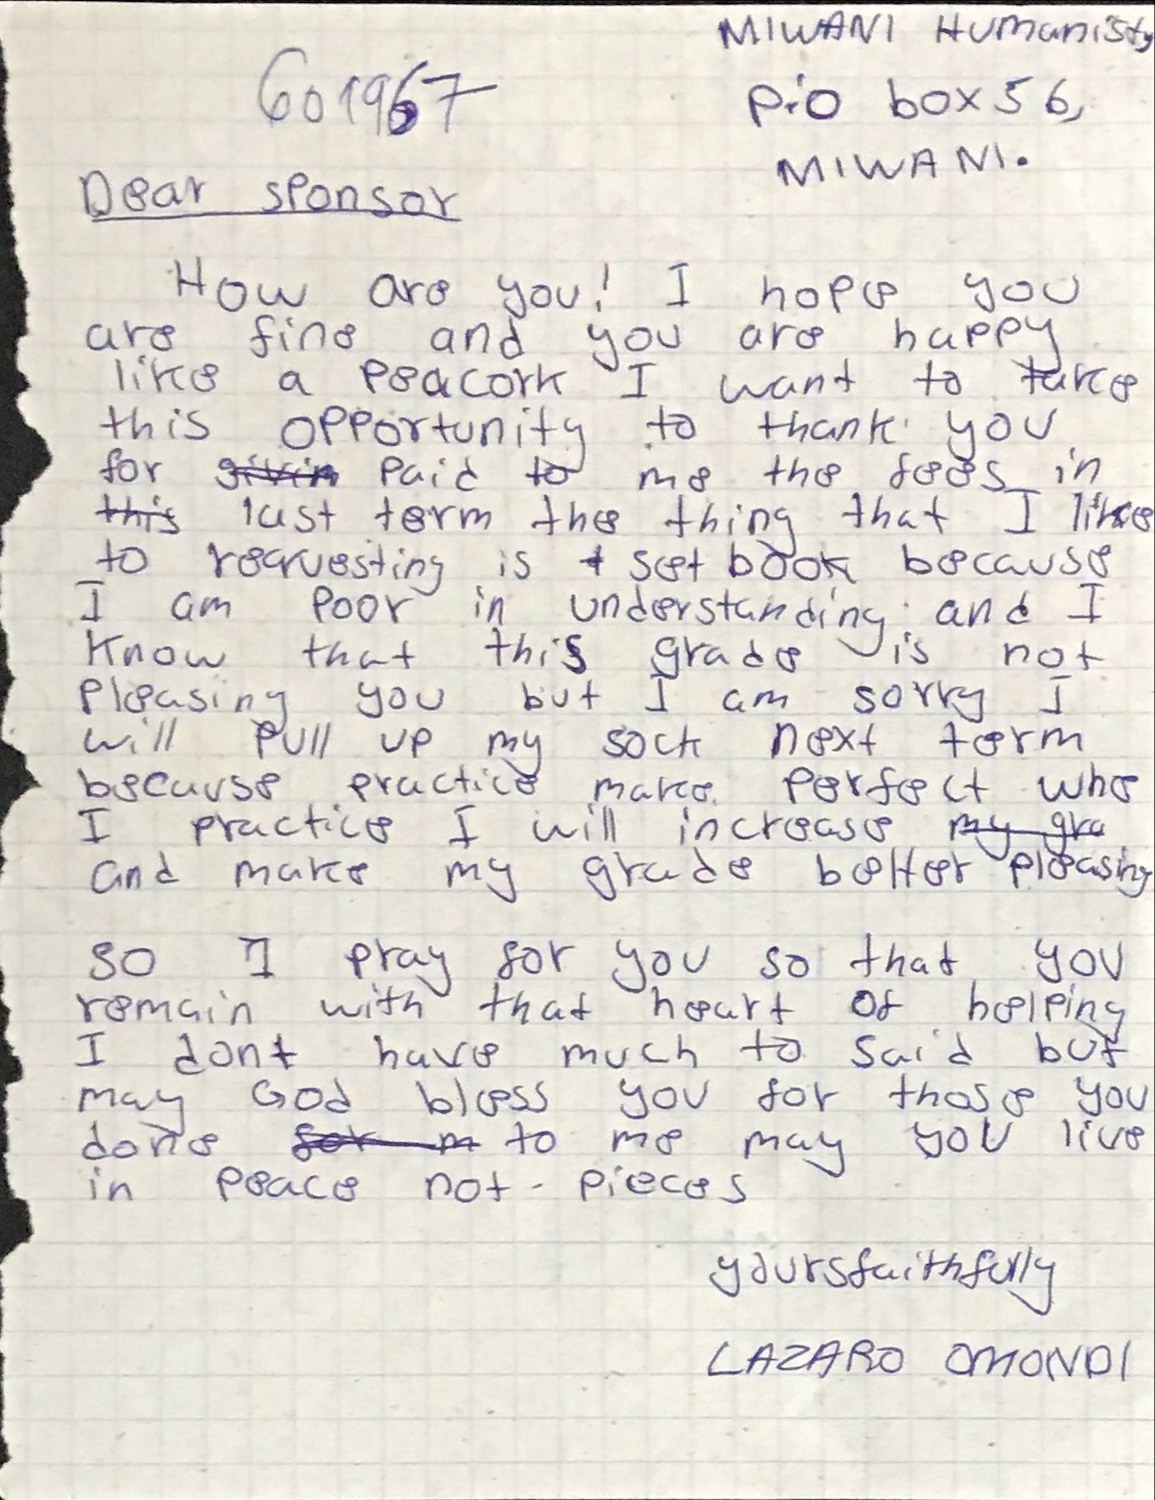 MIWANI Humanisty
601967
P.O box 56,
MIWANI.
Dear sponsor
How are you! I hope you
are fine and you are happy
like a Peacork I want to take
this opportunity to thank you
for givin Paid to me the fees in
this last term the thing that I like
to requesting is set book because
I am Poor in understanding and I
Know that this grade is not
Pleasing you but I am sorry I
will Pull up my sock next term
because practice make Perfect whe
I practice I will increase my gra
and make my grade better pleasing
so I pray for you so that you
remain with that heart of helping
I dont have much to said but
may God bless you for those you
done for m to me may you live
in Peace not - Pieces
yoursfaithfully
LAZARO OMONDI